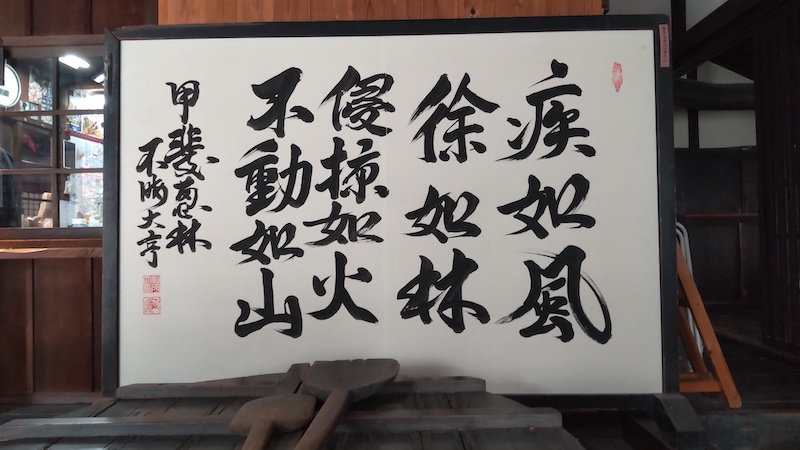 疾如風
徐如林
侵掠如火
不動如山
甲斐恵林
不 大亨